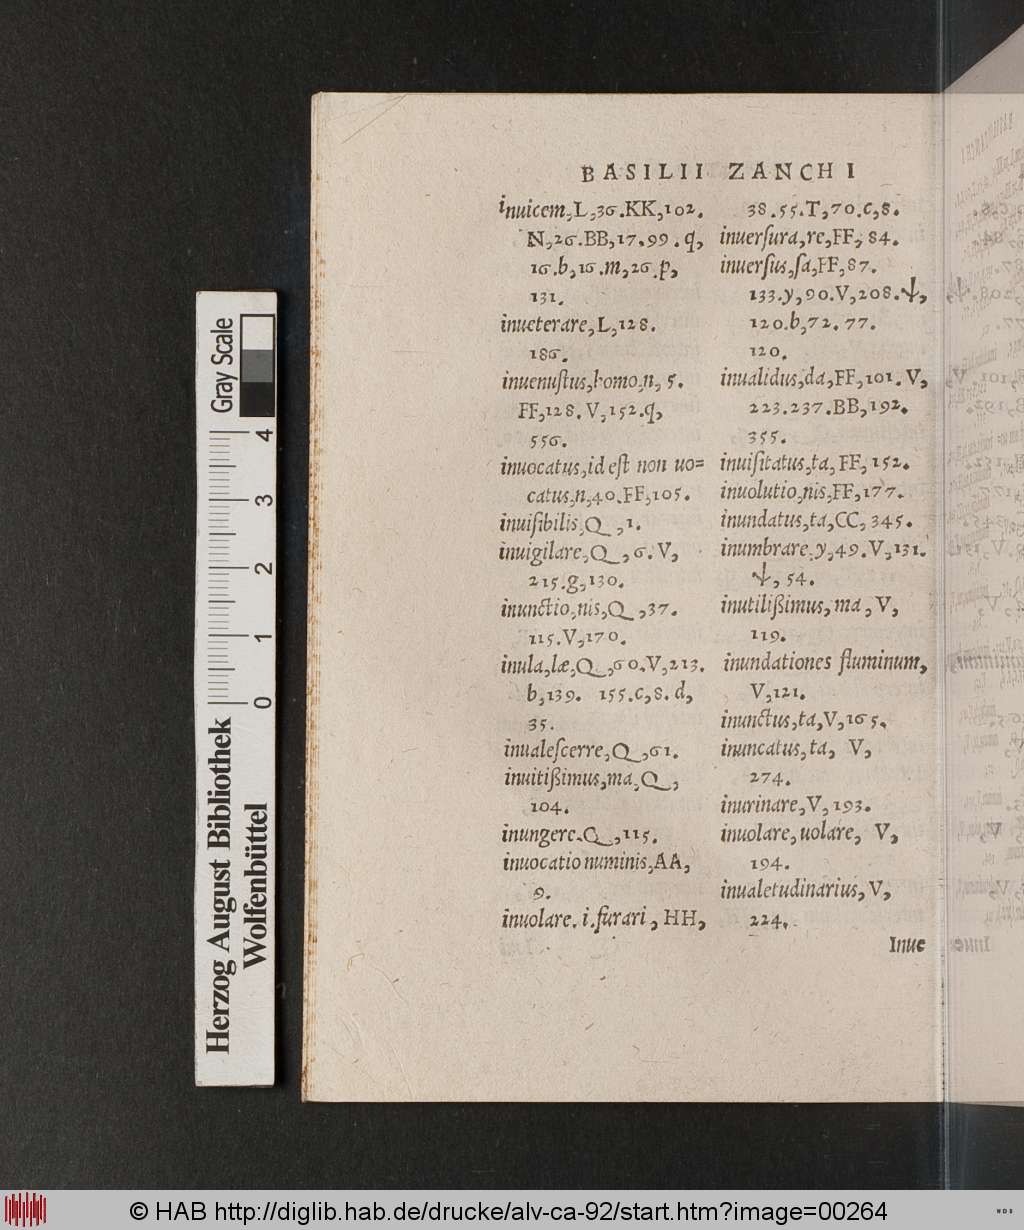 BASILII ZANCHI
inuicem, L, 36. KK, 102.
N, 26. BB, 17. 99. q,
16. b, 16. m, 26. p,
131.
inueterare, L, 128.
186.
inuenuſtus, homo, n, 5.
FF, 128. V, 152. q,
556.
inuocatus, id eſt non uo=
catus, n, 40. FF, 105.
inuiſibilis, Q, 1.
inuigilare, Q, 6. V,
215. g, 130.
inunctio, nis, Q, 37.
115. V, 170.
inula, læ, Q, 60. V, 213.
b, 139. 155. c, 8. d,
35.
inualeſcerre, Q, 61.
inuitißimus, ma, Q,
104.
inungere. Q, 115.
inuocatio numinis, AA,
9.
inuolare. i. furari, HH,
38. 55. T, 70. c, 8.
inuerſura, re, FF, 84.
inuerſus, ſa, FF, 87.
133. y, 90. V, 208. ψ,
120. b, 72. 77.
120.
inualidus, da, FF, 101. V,
223. 237. BB, 192.
355.
inuiſitatus, ta, FF, 152.
inuolutio, nis, FF, 177.
inundatus, ta, CC, 345.
inumbrare. y, 49. V, 131.
ψ, 54.
inutilißimus, ma, V,
119.
inundationes fluminum,
V, 121.
inunctus, ta, V, 165.
inuncatus, ta, V,
274.
inurinare, V, 193.
inuolare, uolare, V,
194.
inualetudinarius, V,
224.
Inue
Herzog August Bibliothek
Wolfenbüttel
0 1 2 3 4
Gray Scale
© HAB http://diglib.hab.de/drucke/alv-ca-92/start.htm?image=00264